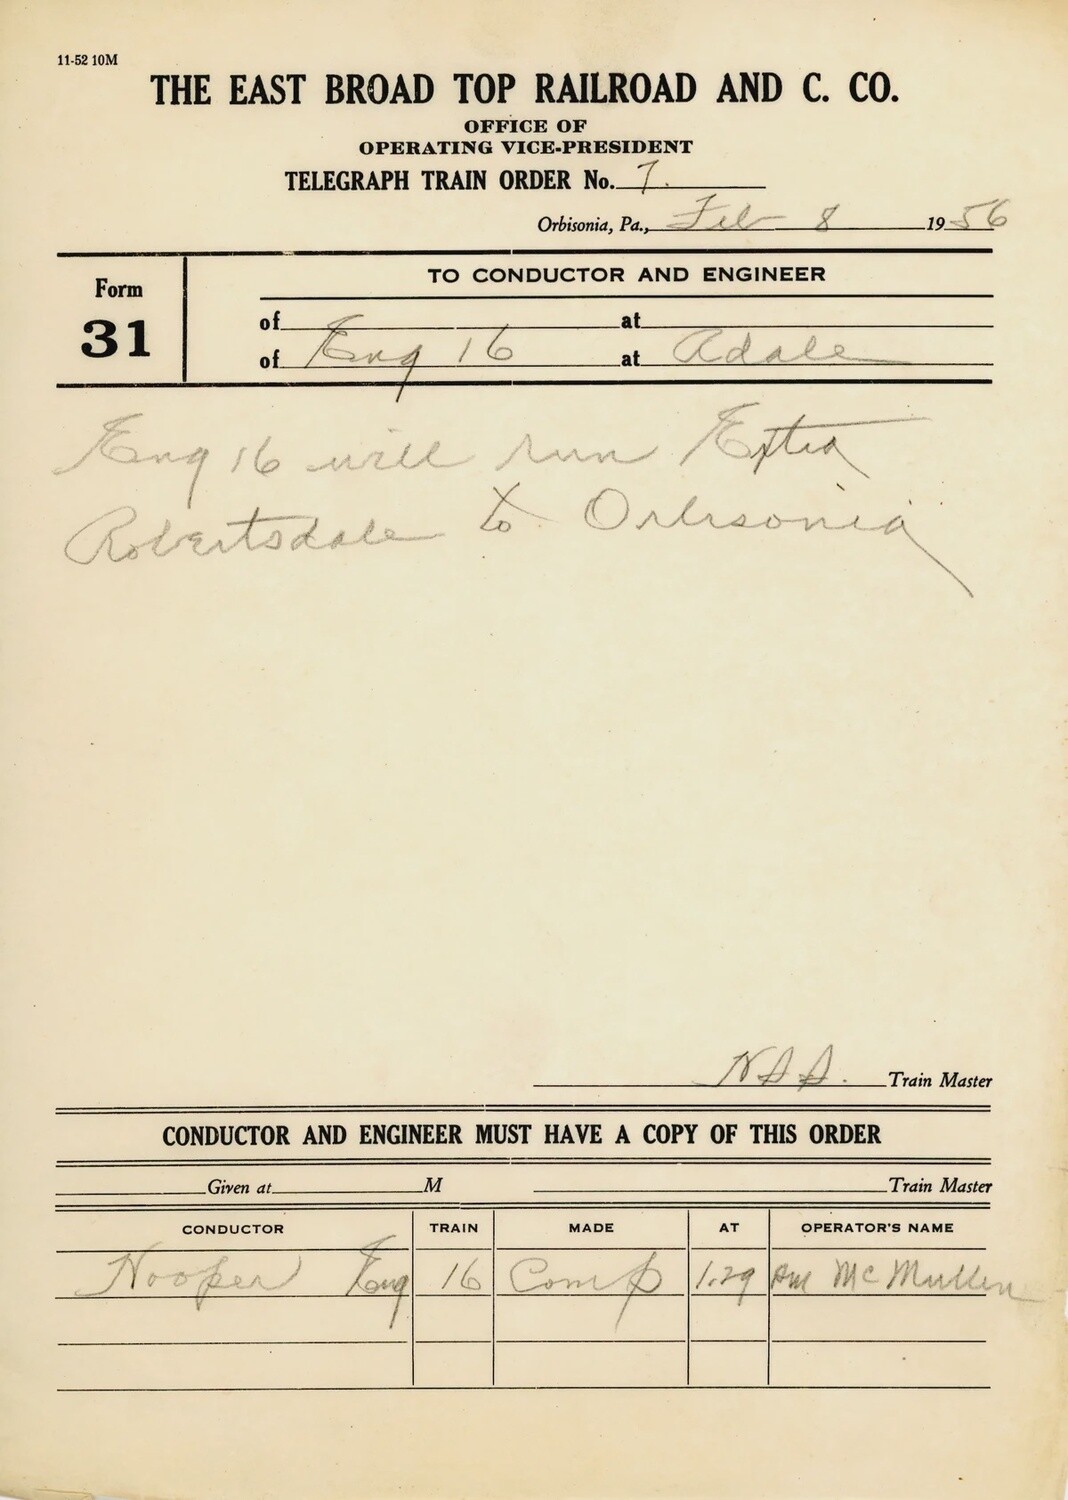 11-52 10M
THE EAST BROAD TOP RAILROAD AND C. CO.
OFFICE OF
OPERATING VICE-PRESIDENT
TELEGRAPH TRAIN ORDER No. 7.
Orbisonia, Pa., Feb 8 1956
Form
31
TO CONDUCTOR AND ENGINEER
of at
of Eng 16 at Adale
Eng 16 will run Extra
Robertsdale to Orbisonia
Train Master
CONDUCTOR AND ENGINEER MUST HAVE A COPY OF THIS ORDER
Given at M Train Master
CONDUCTOR TRAIN MADE AT OPERATOR'S NAME
Hooper Eng 16 Comp 1.29 McMullen